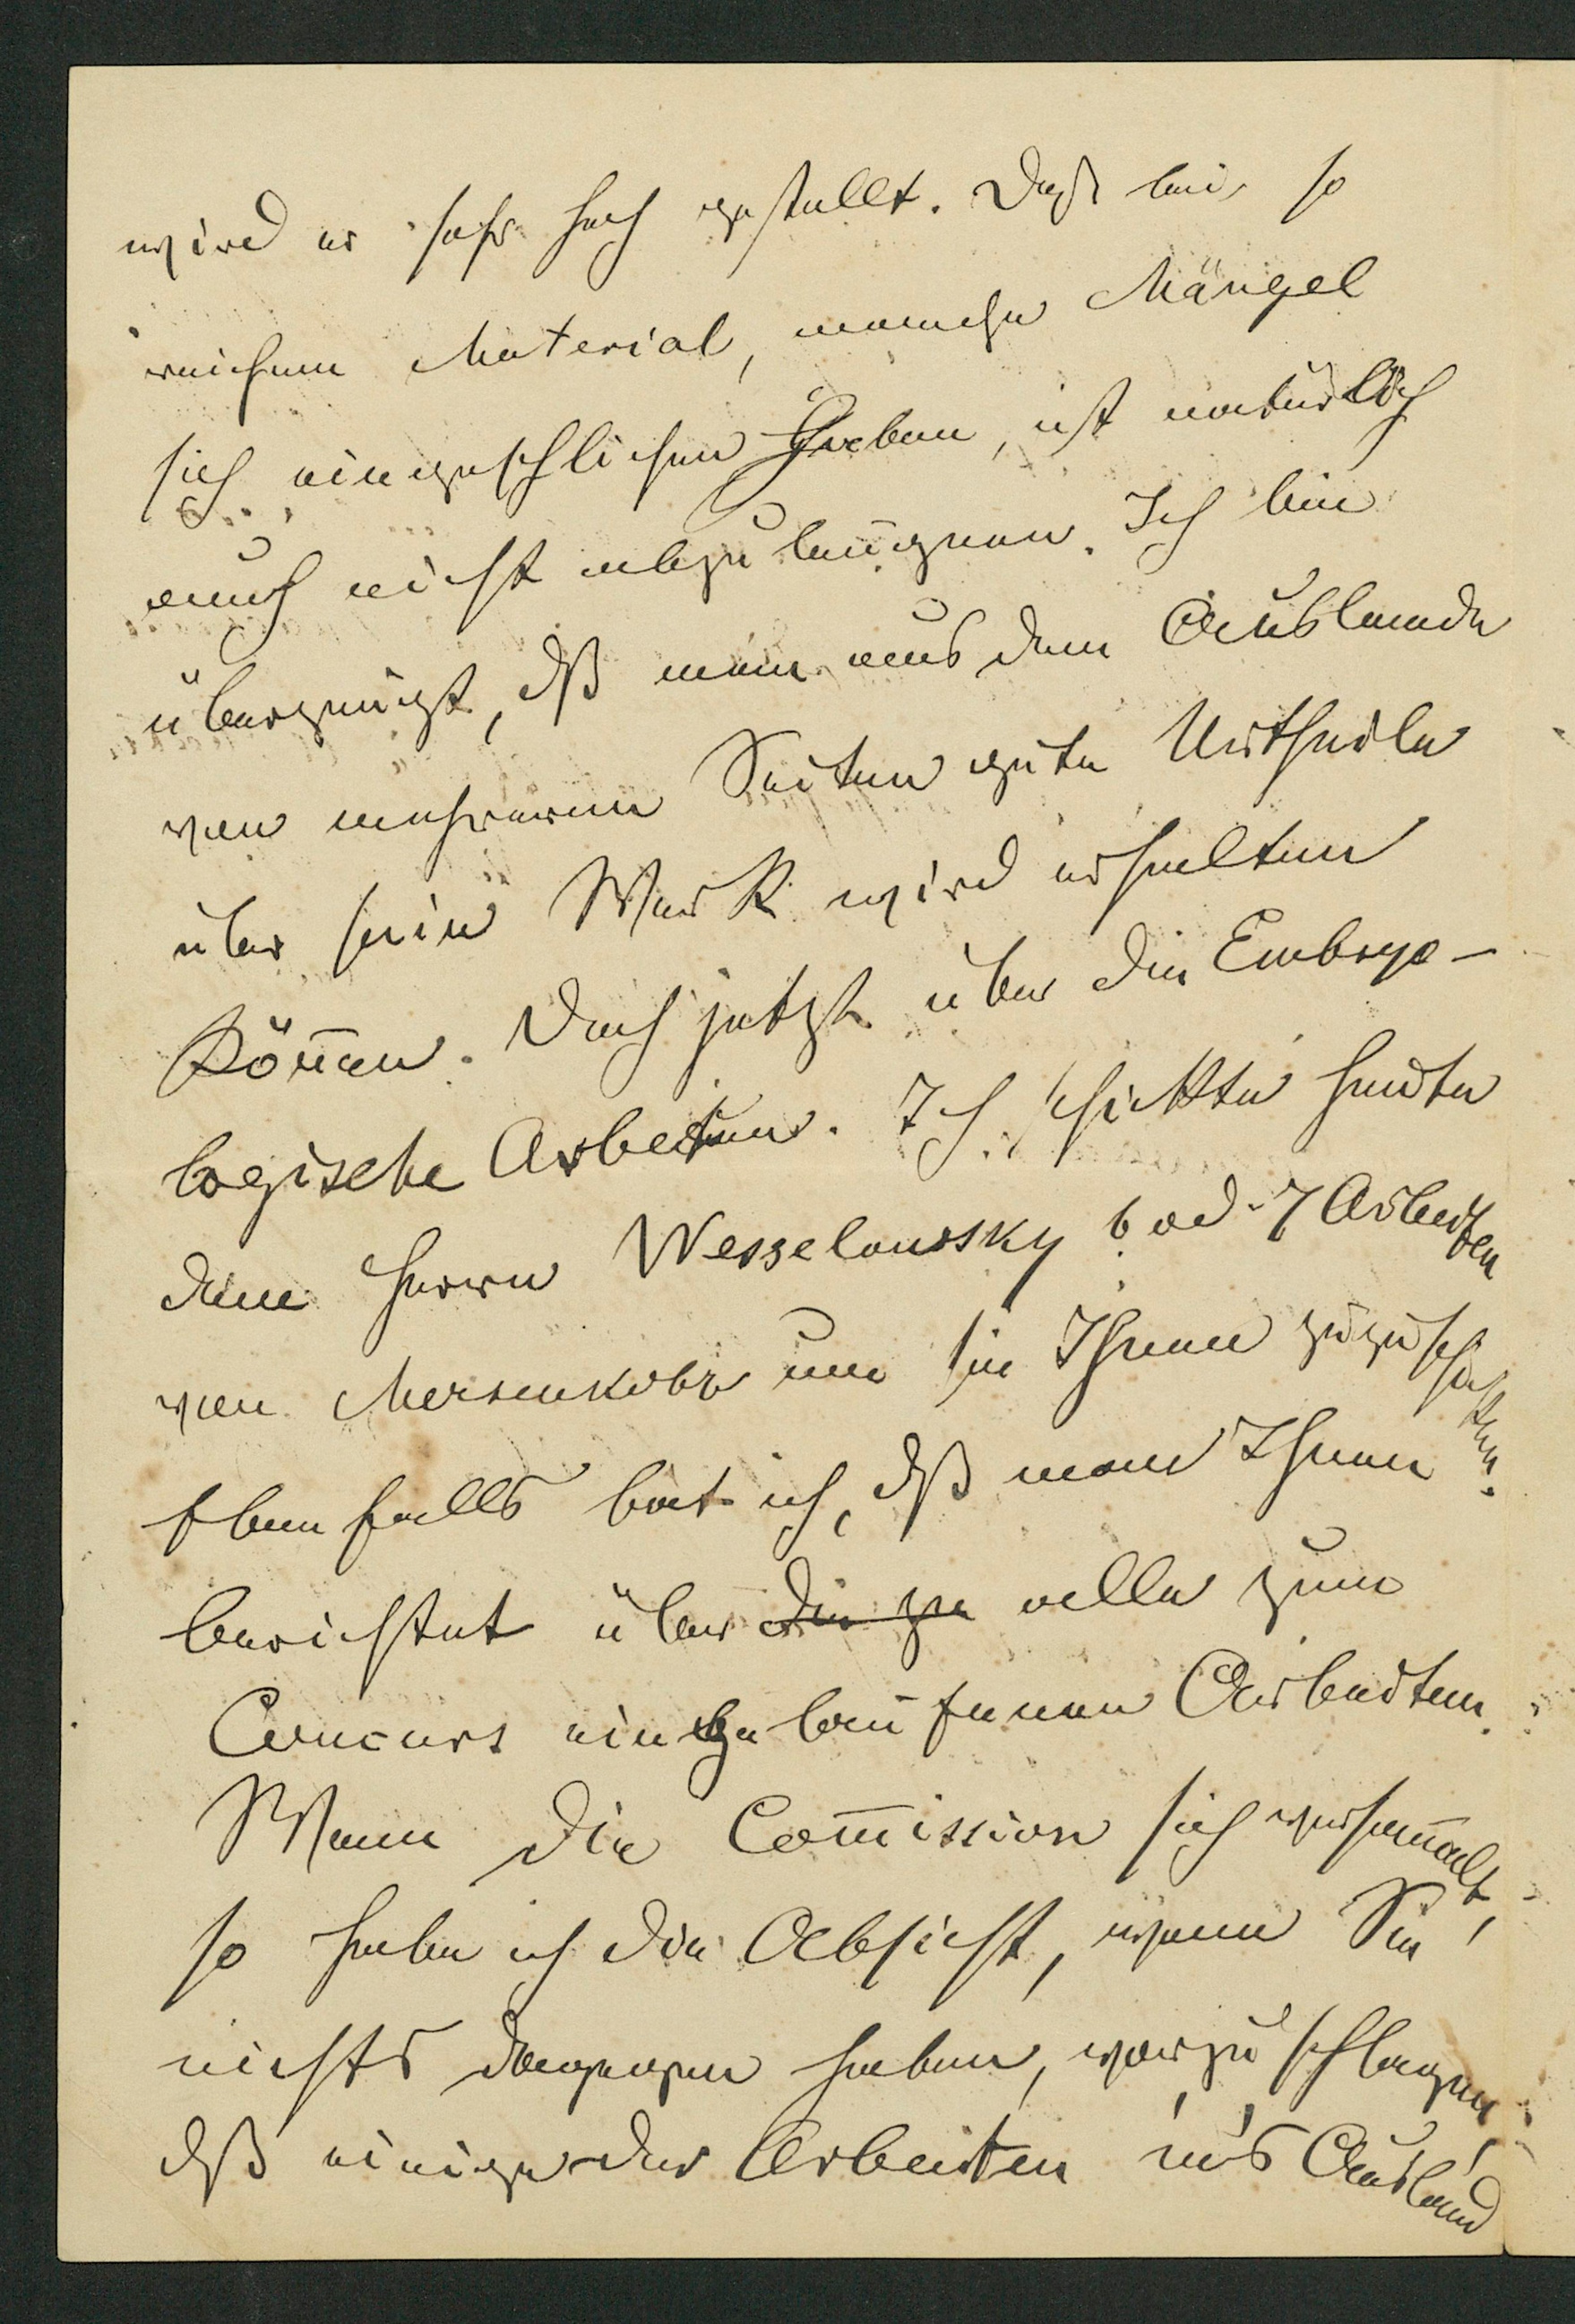 wird er sehr hoch gestellt. Daß bei so
reichem Material, manche Mängel
sich eingeschlichen haben, ist natürlich
auch nicht abzuläugnen. Ich bin
überzeugt, dß man aus dem Auslande
von mehreren Seiten gute Urtheile
über sein Werk wird erhalten
können. Doch jetzt über die Embryo-
logische Arbeiten. Ich schickte heute
dem Herrn Wesselowsky 6 od. 7 Arbeiten
von um sie Ihnen zuzuschicken.
Ebenfalls bat ich, dß man Ihnen
berichtet über die ge alle zum
Concurs eingelaufenen Arbeiten.
Wenn die Com̅ission sich versam̅elt,
so habe ich die Absicht, wenn Sie
nichts dagegen haben, vorzuschlagen,
dß einige der Arbeiten in's Ausland